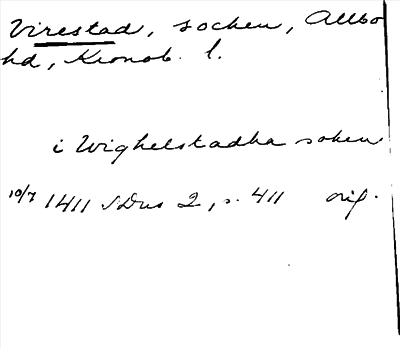 Virestad, socken, Allbo
hd, Kronob. l.
i Wighelstadha soken
10/7 1411 SDns 2, s. 411 orig.